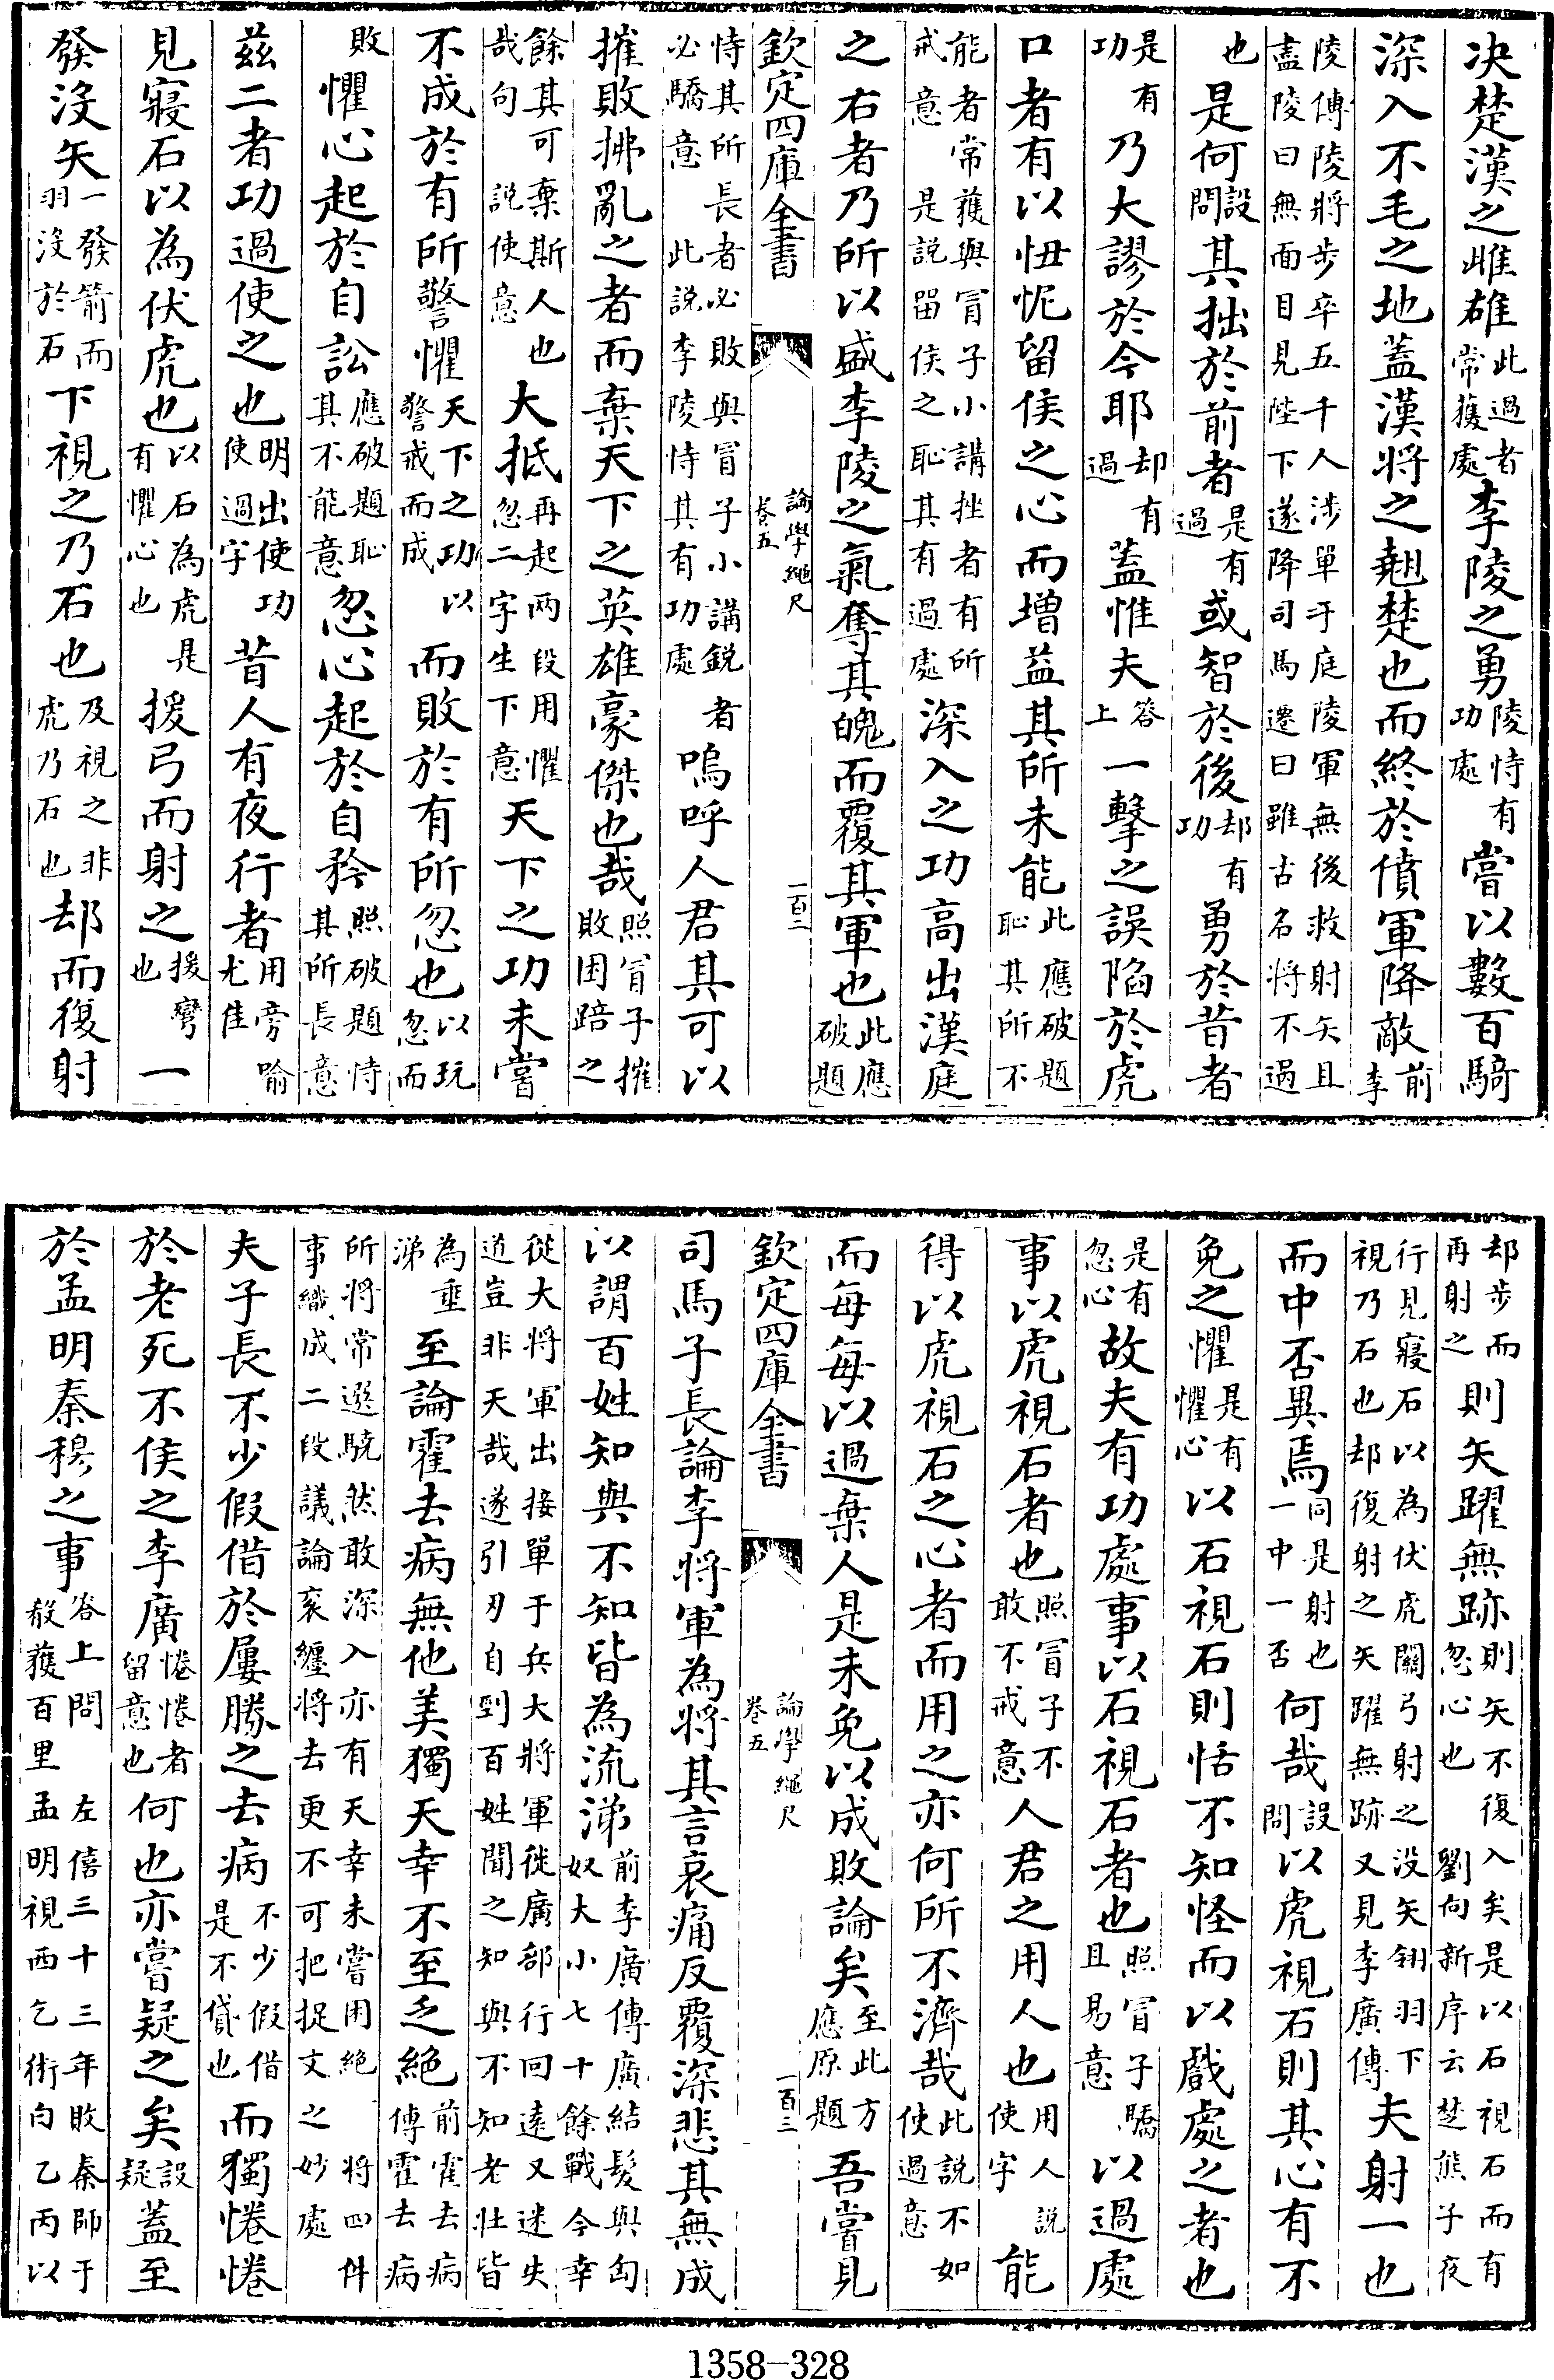 决楚漢之雌雄此過者常獲處李陵之勇陵恃有功處嘗以數百騎
深入不毛之地蓋漢將之翹楚也而終於僨軍降敵前李
陵傳陵將步卒五千人涉單于庭陵軍無後救射矢且盡陵曰無面目見陛下遂降司馬遷曰雖古名將不過
也是何設問其拙於前者是有過或智於後却有功勇於昔者
是有功乃大謬於今耶却有過蓋惟夫答上一擊之誤陷於虎
口者有以忸怩留侯之心而增益其所未能此應破題恥其所不
能者常獲與冒子小講挫者有所戒意是説留侯之恥其有過處深入之功高出漢庭
之右者乃所以盛李陵之氣奪其魄而覆其軍也此應破題
欽定四庫全書 論學繩尺 卷五 一百二
恃其所長者必敗與冒子小講鋭者必驕意此説李陵恃其有功處嗚呼人君其可以
摧敗拂亂之者而棄天下之英雄豪傑也哉照冒子摧敗困踣之
餘其可棄斯人也哉句説使意大抵再起两段用懼忽二字生下意天下之功未嘗
不成於有所警懼天下之功以警戒而成而敗於有所忽也以玩忽而
敗懼心起於自訟應破題恥其不能意忽心起於自矜照破題恃其所長意
兹二者功過使之也明出使功使過字昔人有夜行者用旁喻尤佳
見寢石以為伏虎也以石為虎是有懼心也援弓而射之援彎也一
發没矢一發箭而羽没於石下視之乃石也及視之非虎乃石也却而復射
却步而再射之則矢躍無跡則矢不復入矣是以石視石而有忽心也劉向新序云楚熊子夜
行見寢石以為伏虎關弓射之没矢翎羽下視乃石也却復射之矢躍無跡又見李廣傳夫射一也
而中否異焉同是射也一中一否何哉設問以虎視石則其心有不
免之懼是有懼心以石視石則恬不知怪而以戲處之者也
是有忽心故夫有功處事以石視石者也照冒子驕且易意以過處
事以虎視石者也照冒子不敢不戒意人君之用人也用人説使字能
得以虎視石之心者而用之亦何所不濟哉此説不如使過意
而每每以過棄人是未免以成敗論矣至此方應原題吾嘗見
欽定四庫全書 論學繩尺 卷五 一百三
司馬子長論李將軍為將其言哀痛反覆深悲其無成
以謂百姓知與不知皆為流涕前李廣傳廣結髮與匈奴大小七十餘戰今幸
從大將軍出接單于兵大將軍徙廣部行回遠又迷失道豈非天哉遂引刃自剄百姓聞之知與不知老壯皆
為垂涕至論霍去病無他美獨天幸不至乏絶前霍去病傳霍去病
所將常選驍然敢深入亦有天幸未嘗困絶將四件事織成二段議論衮纏將去更不可把捉文之妙處
夫子長不少假借於屢勝之去病不少假借是不貸也而獨惓惓
於老死不侯之李廣惓惓者留意也何也亦嘗疑之矣設疑蓋至
於孟明秦穆之事答上問殽獲百里孟明視左僖三十三年敗秦師于西乞術白乙丙以
1358-328